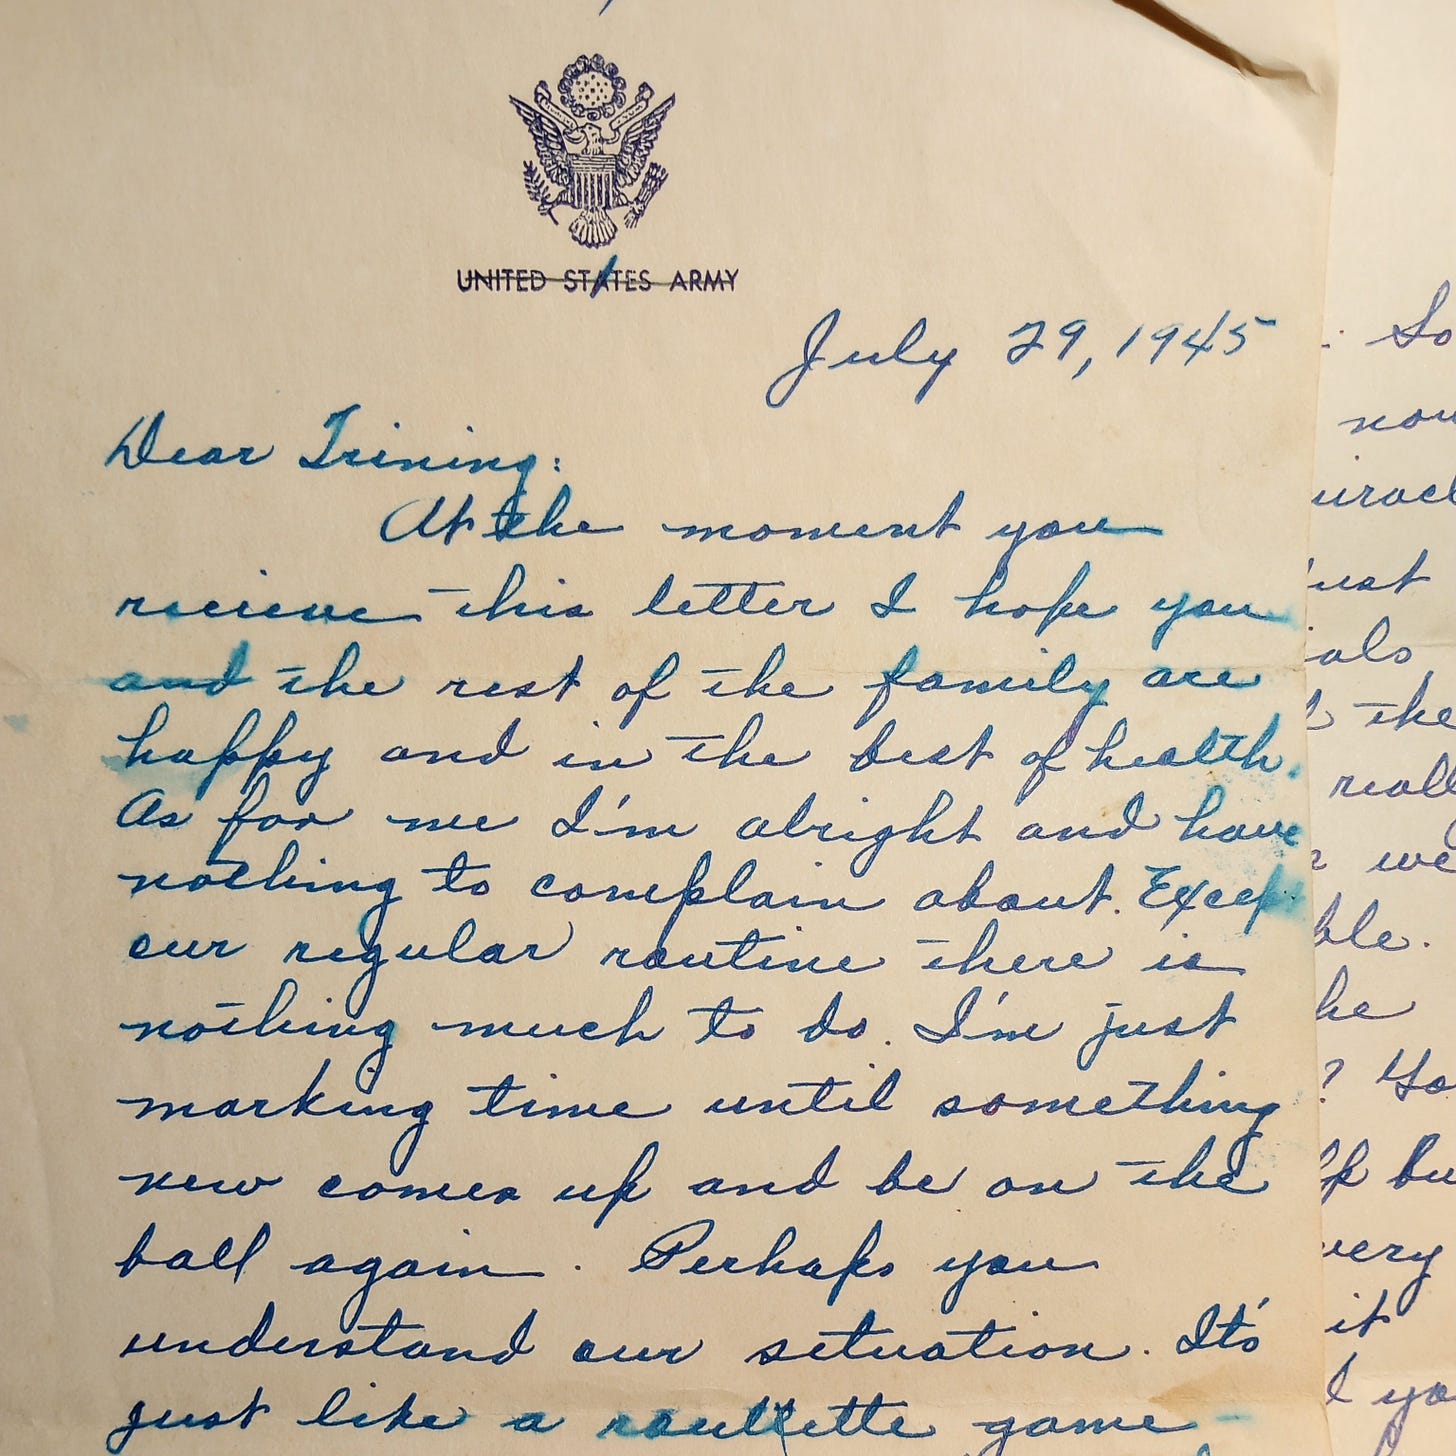 UNITED STATES ARMY
July 29, 1945
Dear Trining:
At the moment you
recieve this letter I hope you
and the rest of the family are
happy and in the best of health.
As for me I'm alright and have
nothing to complain about. Except
our regular routine there is
nothing much to do. I'm just
marking time until something
new comes up and be on the
ball again. Perhaps you
understand our situation. It's
just like a roullette game
So
now
just
the
we
he
? Yo
bu
very
it
yo